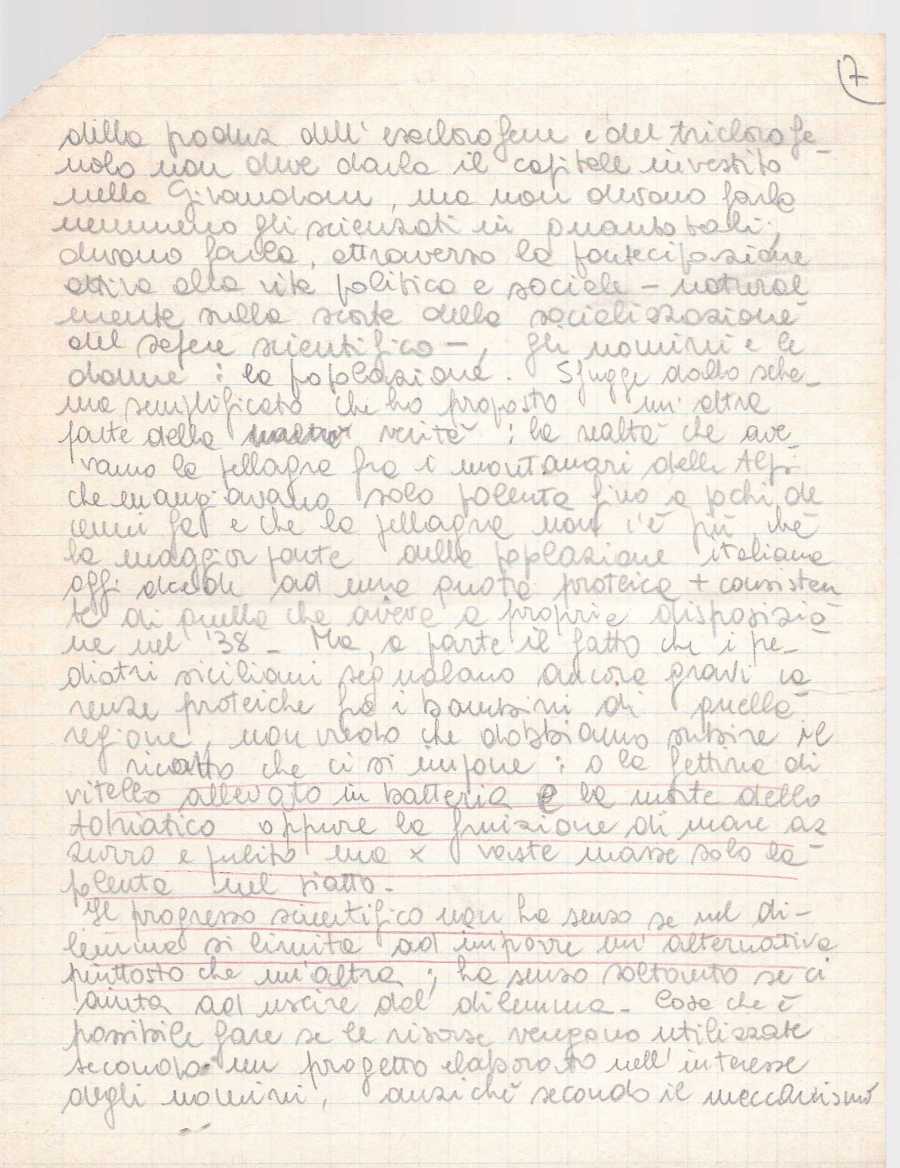 7
della produz dell'esaclorofene e del triclorofe
nolo non deve darla il capitale investito
nella Givaudan, ma non devono farla
nemmeno gli scienzati in quanto tali;
devono farla, attraverso la partecipazione
attiva alla vita politica e sociale - natural
mente sulla scorta della socializzazione
del sapere scientifico -, gli uomini e le
donne : la popolazione. Sfugge dallo sche_
ma semplificato che ho proposto un'altra
parte della verità : la realtà che ave_
vamo la pellagra fra i montanari delle Alpi
che mangiavano solo polenta fino a pochi de
cenni fa e che la pellagra non c'è più chè
la maggior parte della popolazione italiana
oggi accede ad una quota proteica + consisten
te di quella che aveva a propria disposizio
ne nel '38 - Ma, a parte il fatto che i pe_
diatri siciliani segnalano ancora gravi ca
renze proteiche fra i bambini di quella
regione, non vedo che dobbiamo subire il
ricatto che ci si impone : o la fettina di
vitello allevato in batteria e la morte dello
Adriatico oppure la fruizione di mare az
zurro e pulito ma x vaste masse solo la
polenta nel piatto -
Il progresso scientifico non ha senso se nel di-
lemma si limita ad imporre un'alternativa
piuttosto che un'altra ; ha senso soltanto se ci
aiuta ad uscire dal dilemma - Cosa che è
possibile fare se le risorse vengono utilizzate
secondo un progetto elaborato nell'interesse
degli uomini, anzichè secondo il meccanismo